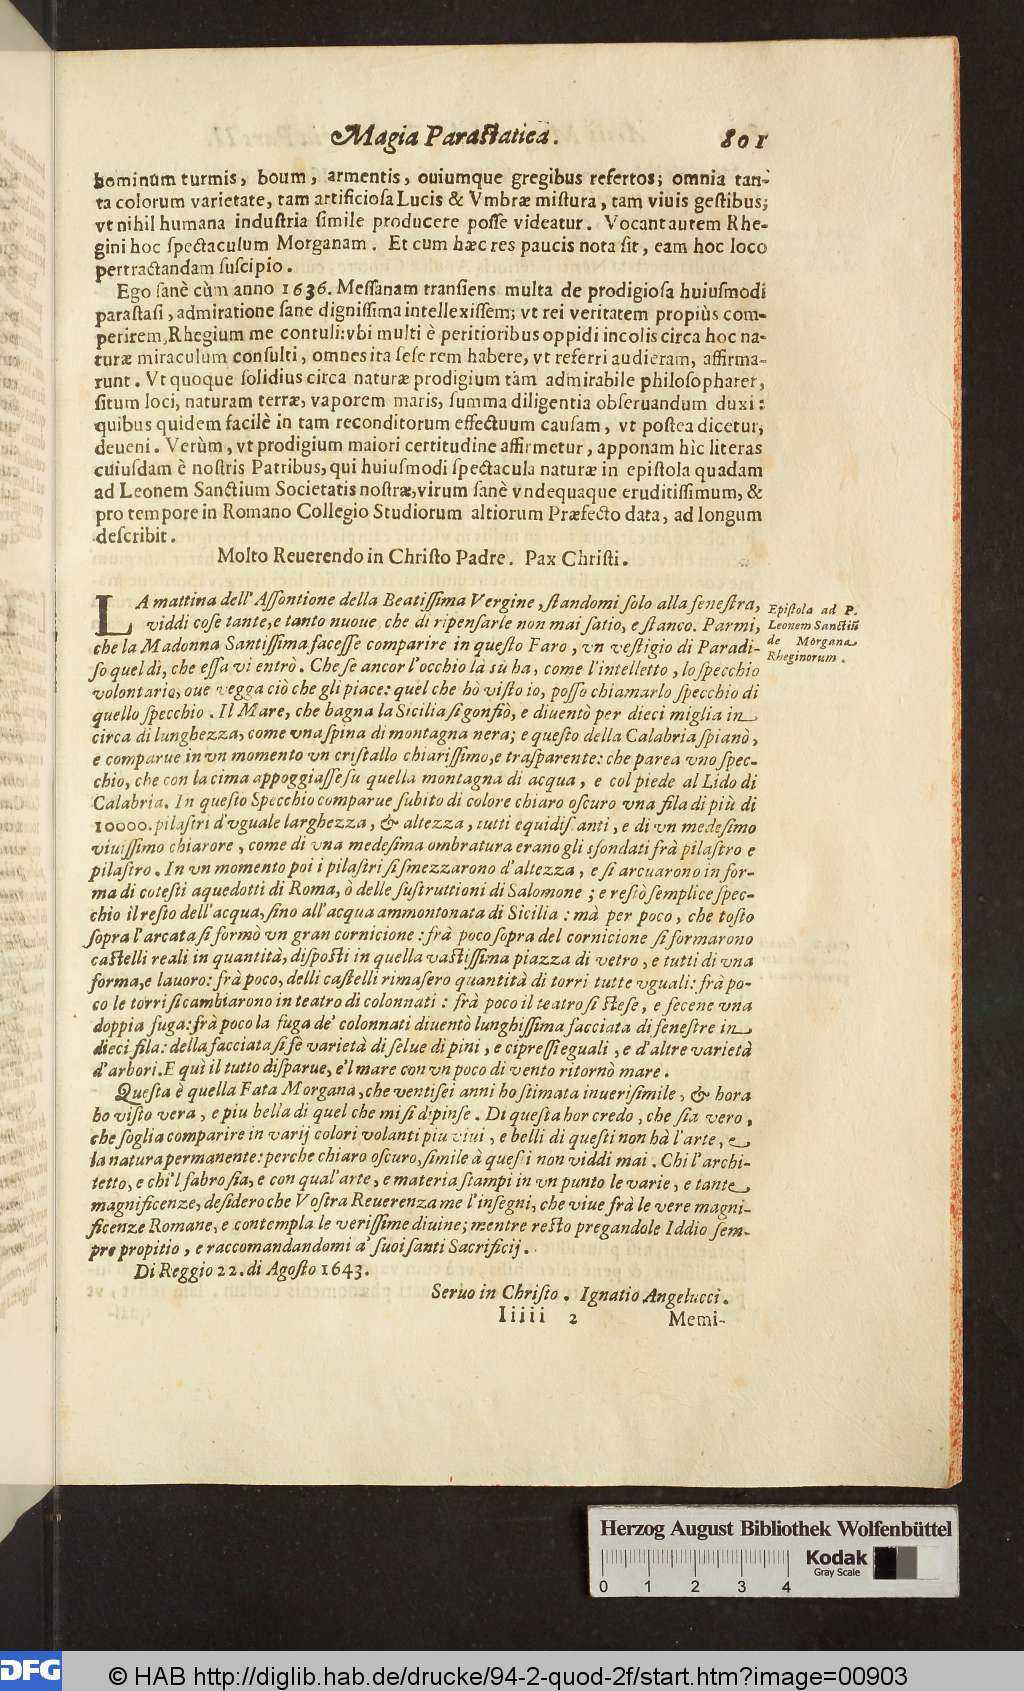 Magia Parastatica. 801
hominum turmis, boum, armentis, ouiumque gregibus refertos; omnia tan-
ta colorum varietate, tam artificiosa Lucis & Vmbræ mistura, tam viuis gestibus;
vt nihil humana industria simile producere posse videatur. Vocant autem Rhe-
gini hoc spectaculum Morganam. Et cum hæc res paucis nota sit, eam hoc loco
pertractandam suscipio.
Ego sanè cùm anno 1636. Messanam transiens multa de prodigiosa huiusmodi
parastasi, admiratione sane dignissima intellexissem; vt rei veritatem propiùs com-
perirem, Rhegium me contuli: vbi multi è peritioribus oppidi incolis circa hoc na-
turæ miraculum consulti, omnes ita sese rem habere, vt referri audieram, affirma-
runt. Vt quoque solidius circa naturæ prodigium tám admirabile philosopharer,
situm loci, naturam terræ, vaporem maris, summa diligentia obseruandum duxi:
quibus quidem facilè in tam reconditorum effectuum causam, vt postea dicetur,
deueni. Verùm, vt prodigium maiori certitudine affirmetur, apponam hìc literas
cuiusdam è nostris Patribus, qui huiusmodi spectacula naturæ in epistola quadam
ad Leonem Sanctium Societatis nostræ, virum sanè vndequaque eruditissimum, &
pro tempore in Romano Collegio Studiorum altiorum Præfecto data, ad longum
describit.
Molto Reuerendo in Christo Padre. Pax Christi.
LA mattina dell'Assontione della Beatissima Vergine, standomi solo alla fenestra,
viddi cose tante, e tanto nuoue, che di ripensarle non mai satio, e stanco. Parmi,
che la Madonna Santissima facesse comparire in questo Faro, vn vestigio di Paradi-
so quel dì, che essa vi entrò. Che se ancor l'occhio là sù ha, come l'intelletto, lo specchio
volontario, oue vegga ciò che gli piace: quel che hò visto io, posso chiamarlo specchio di
quello specchio. Il Mare, che bagna la Sicilia si gonfiò, e diuentò per dieci miglia in
circa di lunghezza, come vna spina di montagna nera; e questo della Calabria spianò,
e comparue in vn momento vn cristallo chiarissimo, e trasparente: che parea vno spec-
chio, che con la cima appoggiasse su quella montagna di acqua, e col piede al Lido di
Calabria. In questo Specchio comparue subito di colore chiaro oscuro vna fila di più di
10000. pilastri d'vguale larghezza, & altezza, tutti equidistanti, e di vn medesimo
viuissimo chiarore, come di vna medesima ombratura erano gli sfondati frà pilastro e
pilastro. In vn momento poi i pilastri si smezzarono d'altezza, e si arcuarono in for-
ma di cotesti aquedotti di Roma, ò delle sustruttioni di Salomone; e restò semplice spec-
chio il resto dell'acqua, sino all'acqua ammontonata di Sicilia: mà per poco, che tosto
sopra l'arcata si formò vn gran cornicione: frà poco sopra del cornicione si formarono
castelli reali in quantità, disposti in quella vastissima piazza di vetro, e tutti di vna
forma, e lauoro: frà poco, delli castelli rimasero quantità di torri tutte vguali: frà po-
co le torri si cambiarono in teatro di colonnati: frà poco il teatro si stese, e fecene vna
doppia fuga: frà poco la fuga de' colonnati diuentò lunghissima facciata di fenestre in
dieci fila: della facciata si fè varietà di selue di pini, e cipressi eguali, e d'altre varietà
d'arbori. E quì il tutto disparue, e'l mare con vn poco di vento ritornò mare.
Questa è quella Fata Morgana, che ventisei anni ho stimata inuerisimile, & hora
ho visto vera, e piu bella di quel che mi si dipinse. Di questa hor credo, che sia vero,
che soglia comparire in varij colori volanti piu viui, e belli di questi non hà l'arte, e
la natura permanente: perche chiaro oscuro, simile à questi non viddi mai. Chi l'archi-
tetto, e chi'l fabro sia, e con qual'arte, e materia stampi in vn punto le varie, e tante
magnificenze, desidero che Vostra Reuerenza me l'insegni, che viue frà le vere magni-
ficenze Romane, e contempla le verissime diuine; mentre resto pregandole Iddio sem-
pre propitio, e raccomandandomi a' suoi santi Sacrificij.
Di Reggio 22. di Agosto 1643.
Seruo in Christo. Ignatio Angelucci.
Iiiii 2 Memi-
Epistola ad P.
Leonem Sanctiũ
de Morgana
Rheginorum.
Herzog August Bibliothek Wolfenbüttel
Kodak
Gray Scale
0 1 2 3 4
DFG
© HAB http://diglib.hab.de/drucke/94-2-quod-2f/start.htm?image=00903